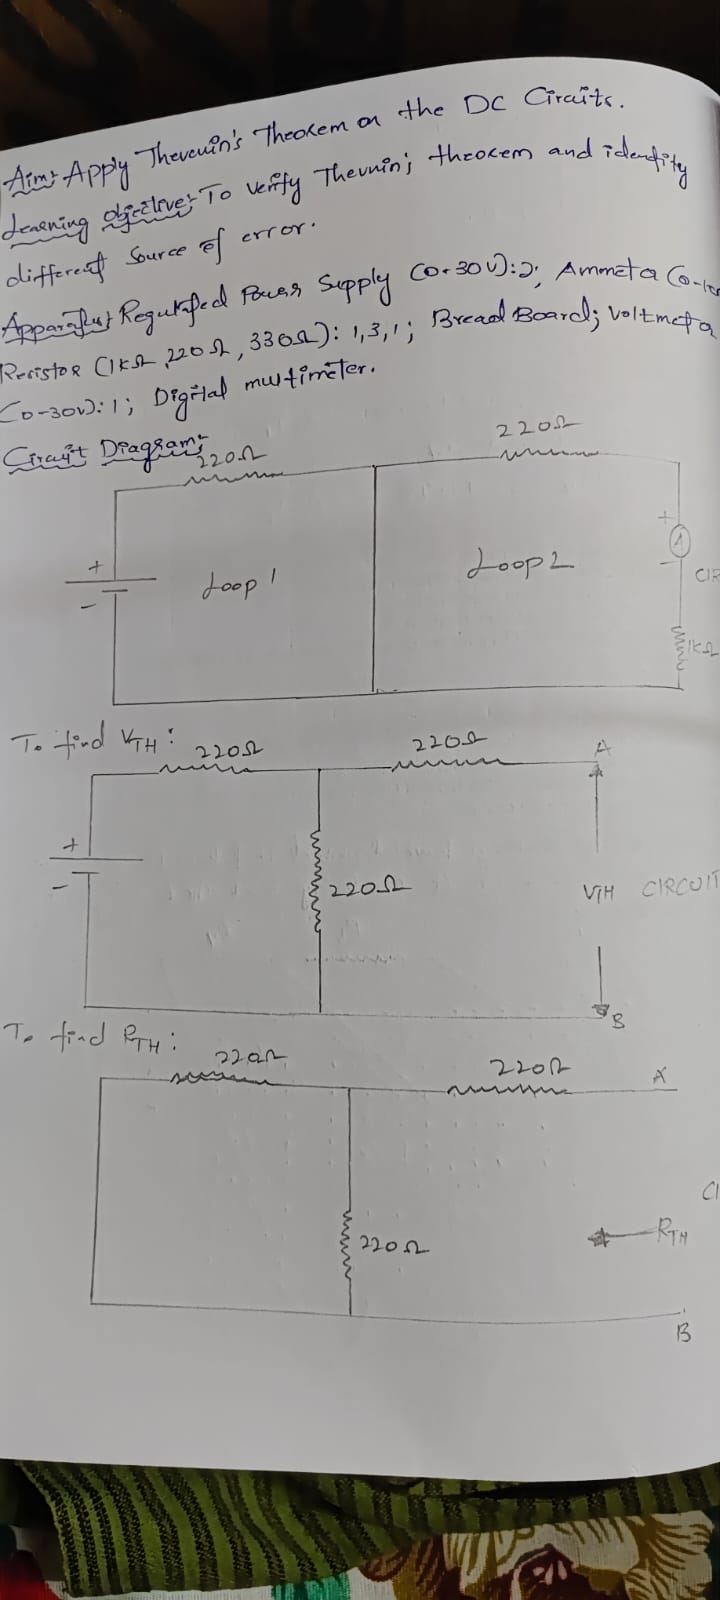 Aim:- Apply Thevenin's Theorem on the DC Circuits.
Learning objective:- To verify Thevnin's theorem and identity
different Source of error.
Apparatus:- Regulated Power Supply (0-30V):2; Ammeta (0-10
Resistor (1kΩ, 220Ω, 330Ω): 1,3,1; Bread Board; Voltmeta
(0-30V):1; Digital multimeter.
Circuit Diagram:-
220Ω
220Ω
+
-
Loop 1
Loop 2
+
A
-
CIR
1kΩ
To find VTH:
220Ω
220Ω
A
+
-
220Ω
VTH CIRCUIT
B
To find RTH:
220Ω
220Ω
A
220Ω
CI
RTH
B